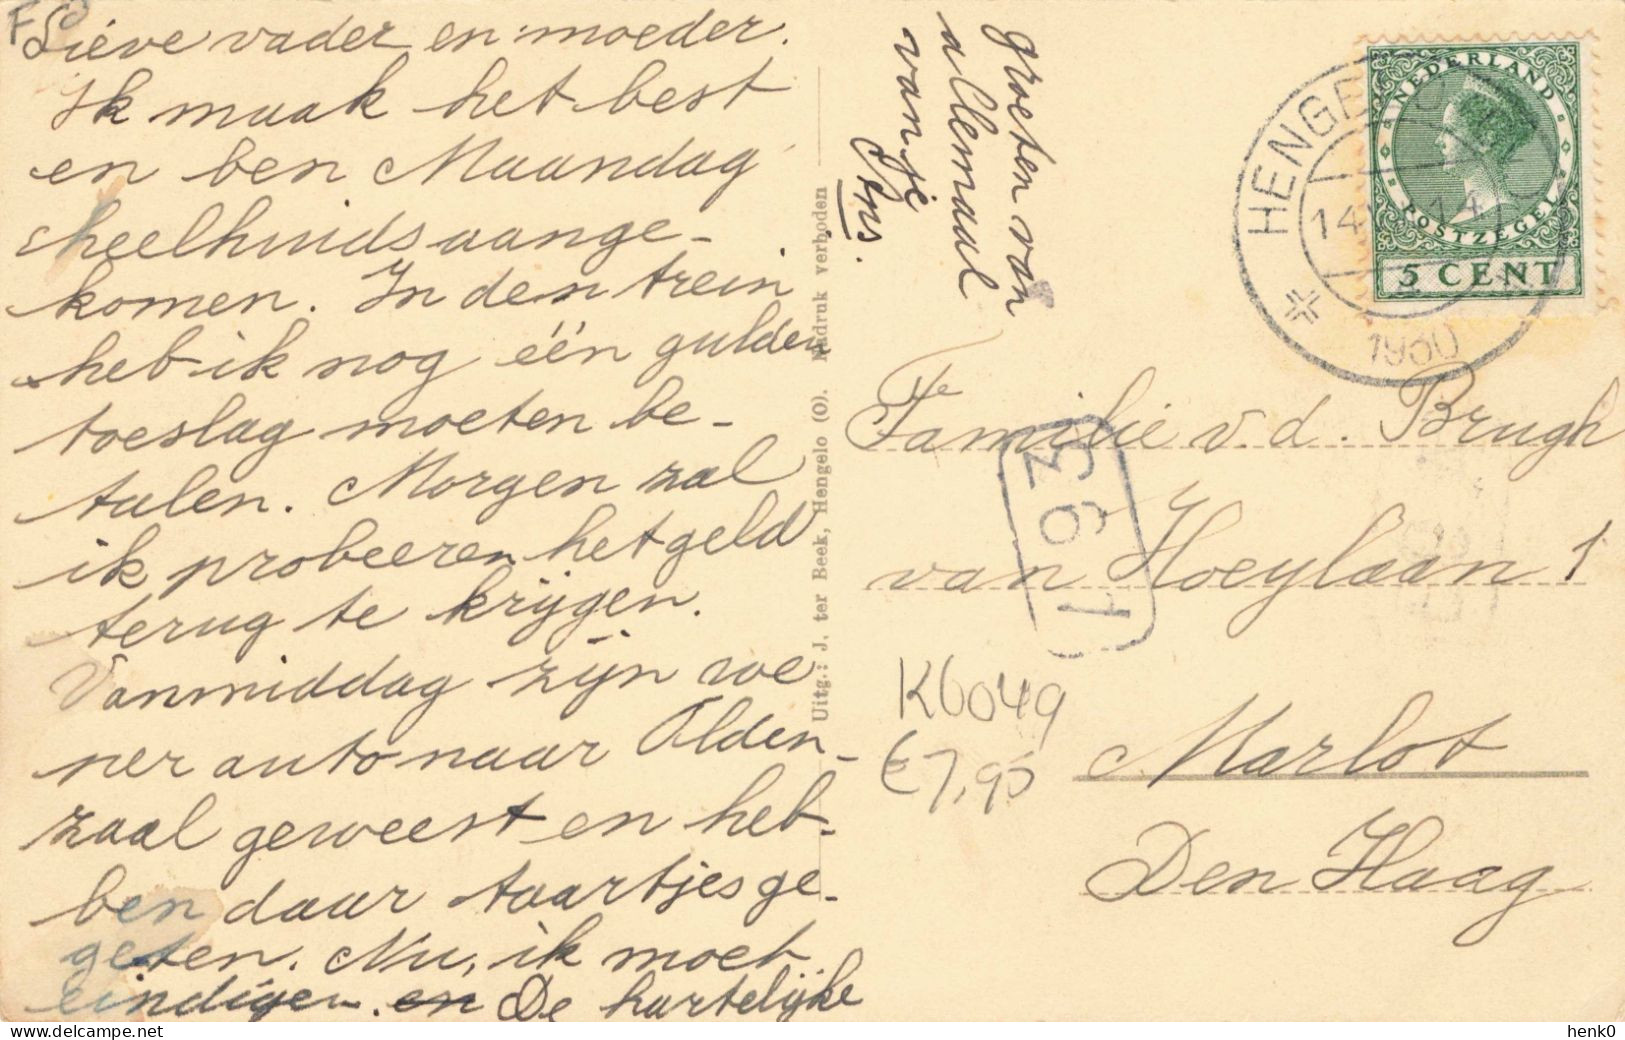 Lieve vader en moeder.
Ik maak het best
en ben Maandag
heelhuids aange-
komen. In den trein
heb ik nog één gulden
toeslag moeten be-
talen. Morgen zal
ik probeeren het geld
terug te krijgen.
Vanmiddag zijn we
per auto naar Olden-
zaal geweest en heb-
ben daar taartjes ge-
geten. Nu, ik moet
eindigen. en De hartelijke
groeten van
allemaal
van je
Uitg.: J. ter Beek, Hengelo (O). Nadruk verboden
NEDERLAND
POSTZEGEL
5 CENT
HENGELO
14
14
1930
Familie v.d. Brugh
van Hoeylaan 1
Marlot
Den Haag
1693
K6049
€7,95
henk0